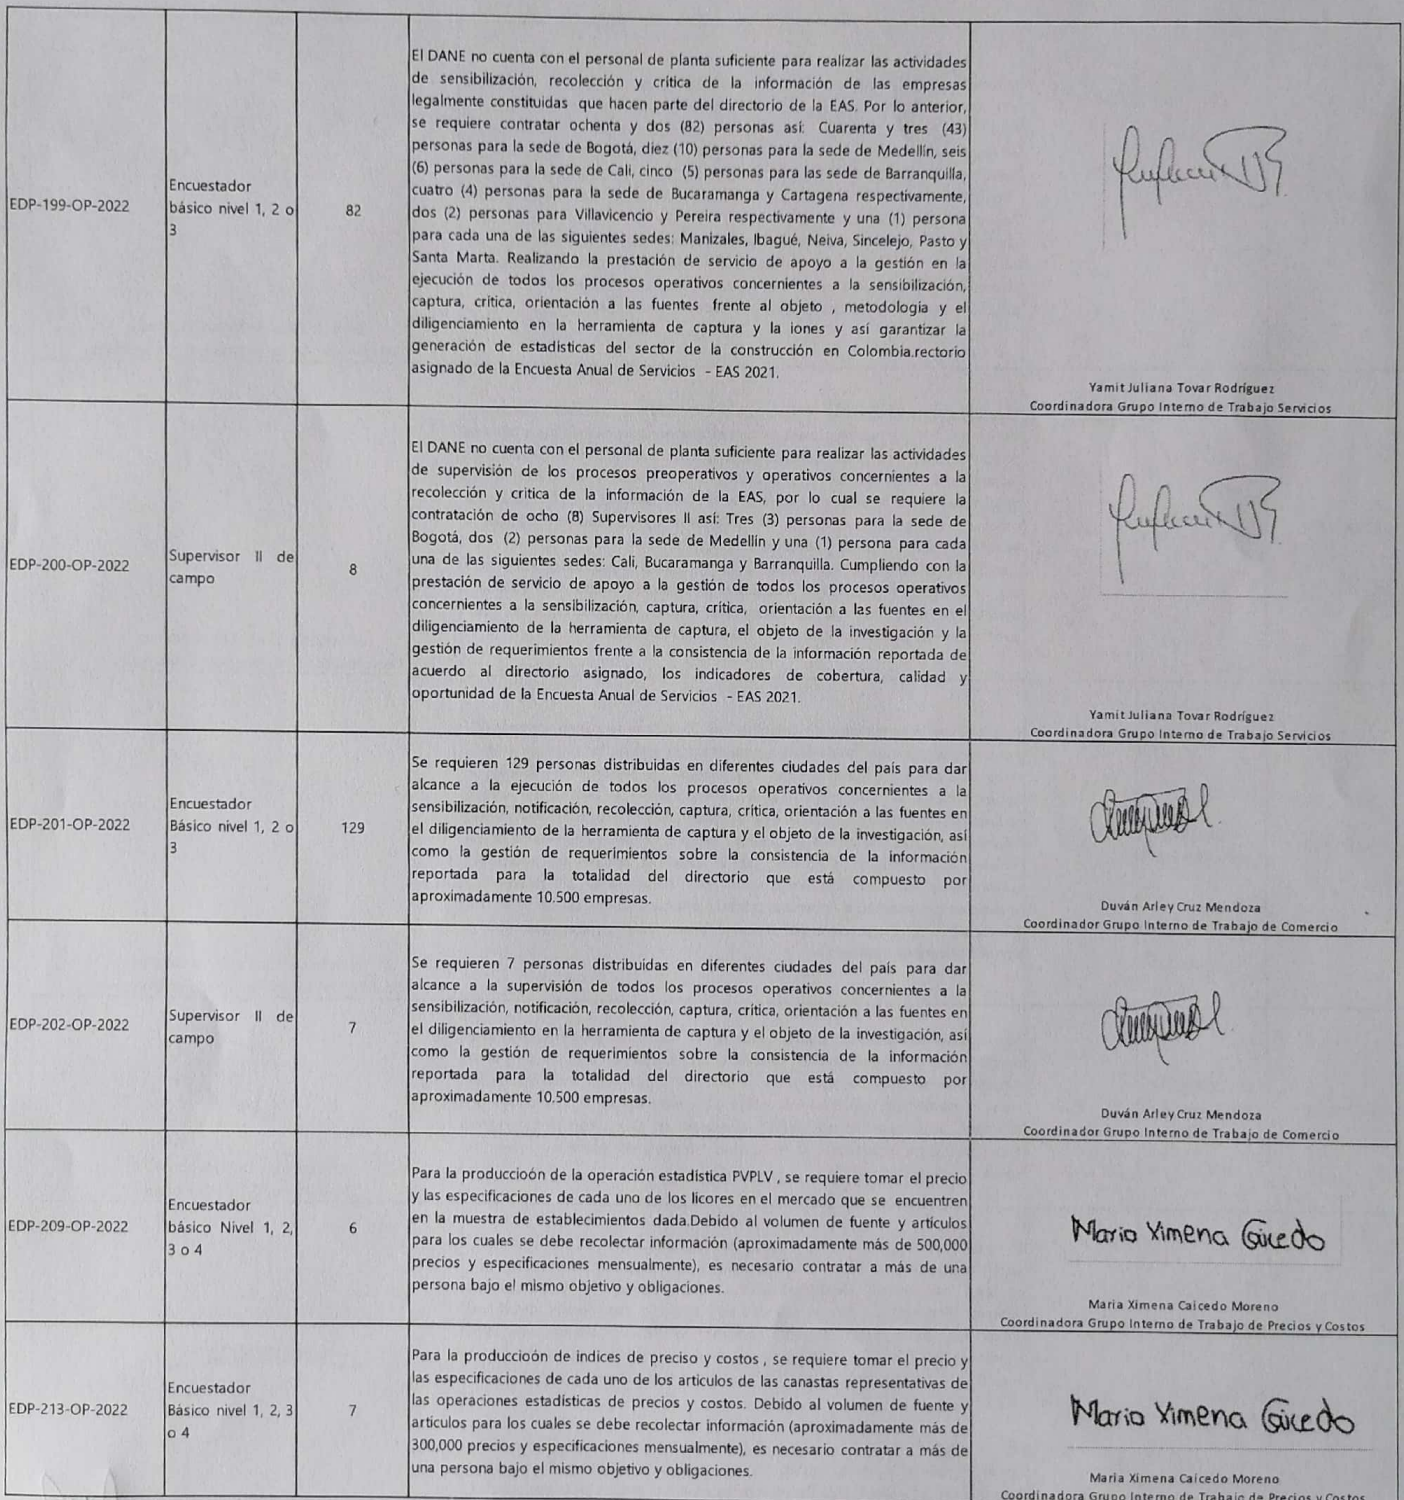 EDP-199-OP-2022
Encuestador
básico nivel 1, 2 o
3
82
El DANE no cuenta con el personal de planta suficiente para realizar las actividades
de sensibilización, recolección y critica de la información de las empresas
legalmente constituidas que hacen parte del directorio de la EAS. Por lo anterior,
se requiere contratar ochenta y dos (82) personas así: Cuarenta y tres (43)
personas para la sede de Bogotá, diez (10) personas para la sede de Medellín, seis
(6) personas para la sede de Cali, cinco (5) personas para las sede de Barranquilla,
cuatro (4) personas para la sede de Bucaramanga y Cartagena respectivamente,
dos (2) personas para Villavicencio y Pereira respectivamente y una (1) persona
para cada una de las siguientes sedes: Manizales, Ibagué, Neiva, Sincelejo, Pasto y
Santa Marta. Realizando la prestación de servicio de apoyo a la gestión en la
ejecución de todos los procesos operativos concernientes a la sensibilización,
captura, critica, orientación a las fuentes frente al objeto , metodología y el
diligenciamiento en la herramienta de captura y la iones y así garantizar la
generación de estadísticas del sector de la construcción en Colombia.rectorio
asignado de la Encuesta Anual de Servicios - EAS 2021.
Yamit Juliana Tovar Rodríguez
Coordinadora Grupo Interno de Trabajo Servicios
EDP-200-OP-2022
Supervisor II de
campo
8
El DANE no cuenta con el personal de planta suficiente para realizar las actividades
de supervisión de los procesos preoperativos y operativos concernientes a la
recolección y critica de la información de la EAS, por lo cual se requiere la
contratación de ocho (8) Supervisores II así: Tres (3) personas para la sede de
Bogotá, dos (2) personas para la sede de Medellín y una (1) persona para cada
una de las siguientes sedes: Cali, Bucaramanga y Barranquilla. Cumpliendo con la
prestación de servicio de apoyo a la gestión de todos los procesos operativos
concernientes a la sensibilización, captura, crítica, orientación a las fuentes en el
diligenciamiento de la herramienta de captura, el objeto de la investigación y la
gestión de requerimientos frente a la consistencia de la información reportada de
acuerdo al directorio asignado, los indicadores de cobertura, calidad y
oportunidad de la Encuesta Anual de Servicios - EAS 2021.
Yamit Juliana Tovar Rodríguez
Coordinadora Grupo Interno de Trabajo Servicios
EDP-201-OP-2022
Encuestador
Básico nivel 1, 2 o
3
129
Se requieren 129 personas distribuidas en diferentes ciudades del país para dar
alcance a la ejecución de todos los procesos operativos concernientes a la
sensibilización, notificación, recolección, captura, crítica, orientación a las fuentes en
el diligenciamiento de la herramienta de captura y el objeto de la investigación, así
como la gestión de requerimientos sobre la consistencia de la información
reportada para la totalidad del directorio que está compuesto por
aproximadamente 10.500 empresas.
Duván Arley Cruz Mendoza
Coordinador Grupo Interno de Trabajo de Comercio
EDP-202-OP-2022
Supervisor II de
campo
7
Se requieren 7 personas distribuidas en diferentes ciudades del país para dar
alcance a la supervisión de todos los procesos operativos concernientes a la
sensibilización, notificación, recolección, captura, crítica, orientación a las fuentes en
el diligenciamiento en la herramienta de captura y el objeto de la investigación, así
como la gestión de requerimientos sobre la consistencia de la información
reportada para la totalidad del directorio que está compuesto por
aproximadamente 10.500 empresas.
Duván Arley Cruz Mendoza
Coordinador Grupo Interno de Trabajo de Comercio
EDP-209-OP-2022
Encuestador
básico Nivel 1, 2,
3 o 4
6
Para la produccioón de la operación estadística PVPLV , se requiere tomar el precio
y las especificaciones de cada uno de los licores en el mercado que se encuentren
en la muestra de establecimientos dada.Debido al volumen de fuente y artículos
para los cuales se debe recolectar información (aproximadamente más de 500,000
precios y especificaciones mensualmente), es necesario contratar a más de una
persona bajo el mismo objetivo y obligaciones.
Maria Ximena Caicedo
Maria Ximena Caicedo Moreno
Coordinadora Grupo Interno de Trabajo de Precios y Costos
EDP-213-OP-2022
Encuestador
Básico nivel 1, 2, 3
o 4
7
Para la produccioón de indices de preciso y costos , se requiere tomar el precio y
las especificaciones de cada uno de los articulos de las canastas representativas de
las operaciones estadísticas de precios y costos. Debido al volumen de fuente y
artículos para los cuales se debe recolectar información (aproximadamente más de
300,000 precios y especificaciones mensualmente), es necesario contratar a más de
una persona bajo el mismo objetivo y obligaciones.
Maria Ximena Caicedo
Maria Ximena Caicedo Moreno
Coordinadora Grupo Interno de Trabajo de Precios y Costos